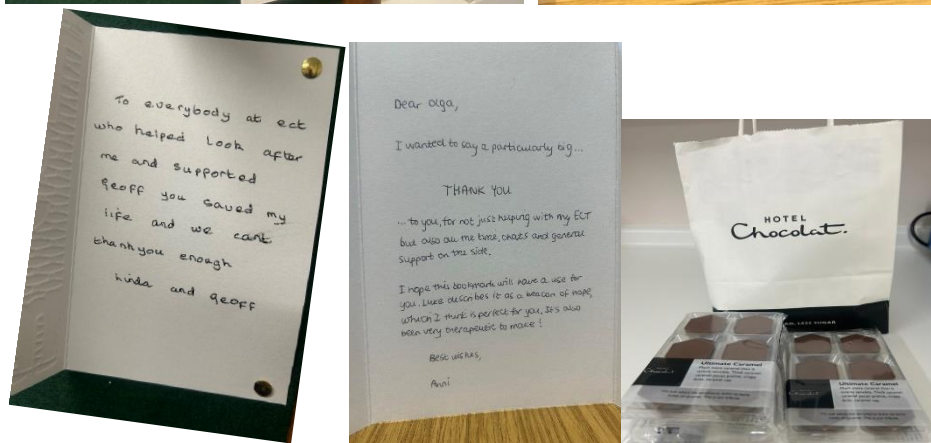 To everybody at ect
who helped look after
me and supported
geoff you saved my
life and we cant
thank you enough
Linda and geoff
Dear Olga,
I wanted to say a particularly big...
THANK YOU
... to you, for not just helping with my ECT
but also all the time, chats and general
support on the side.
I hope this bookmark will have a use for
you. Luke describes it as a beacon of hope,
which I think is perfect for you. It's also
been very therapeutic to make!
Best wishes,
Anni
HOTEL
Chocolat.
LESS SUGAR
Ultimate Caramel
Ultimate Caramel